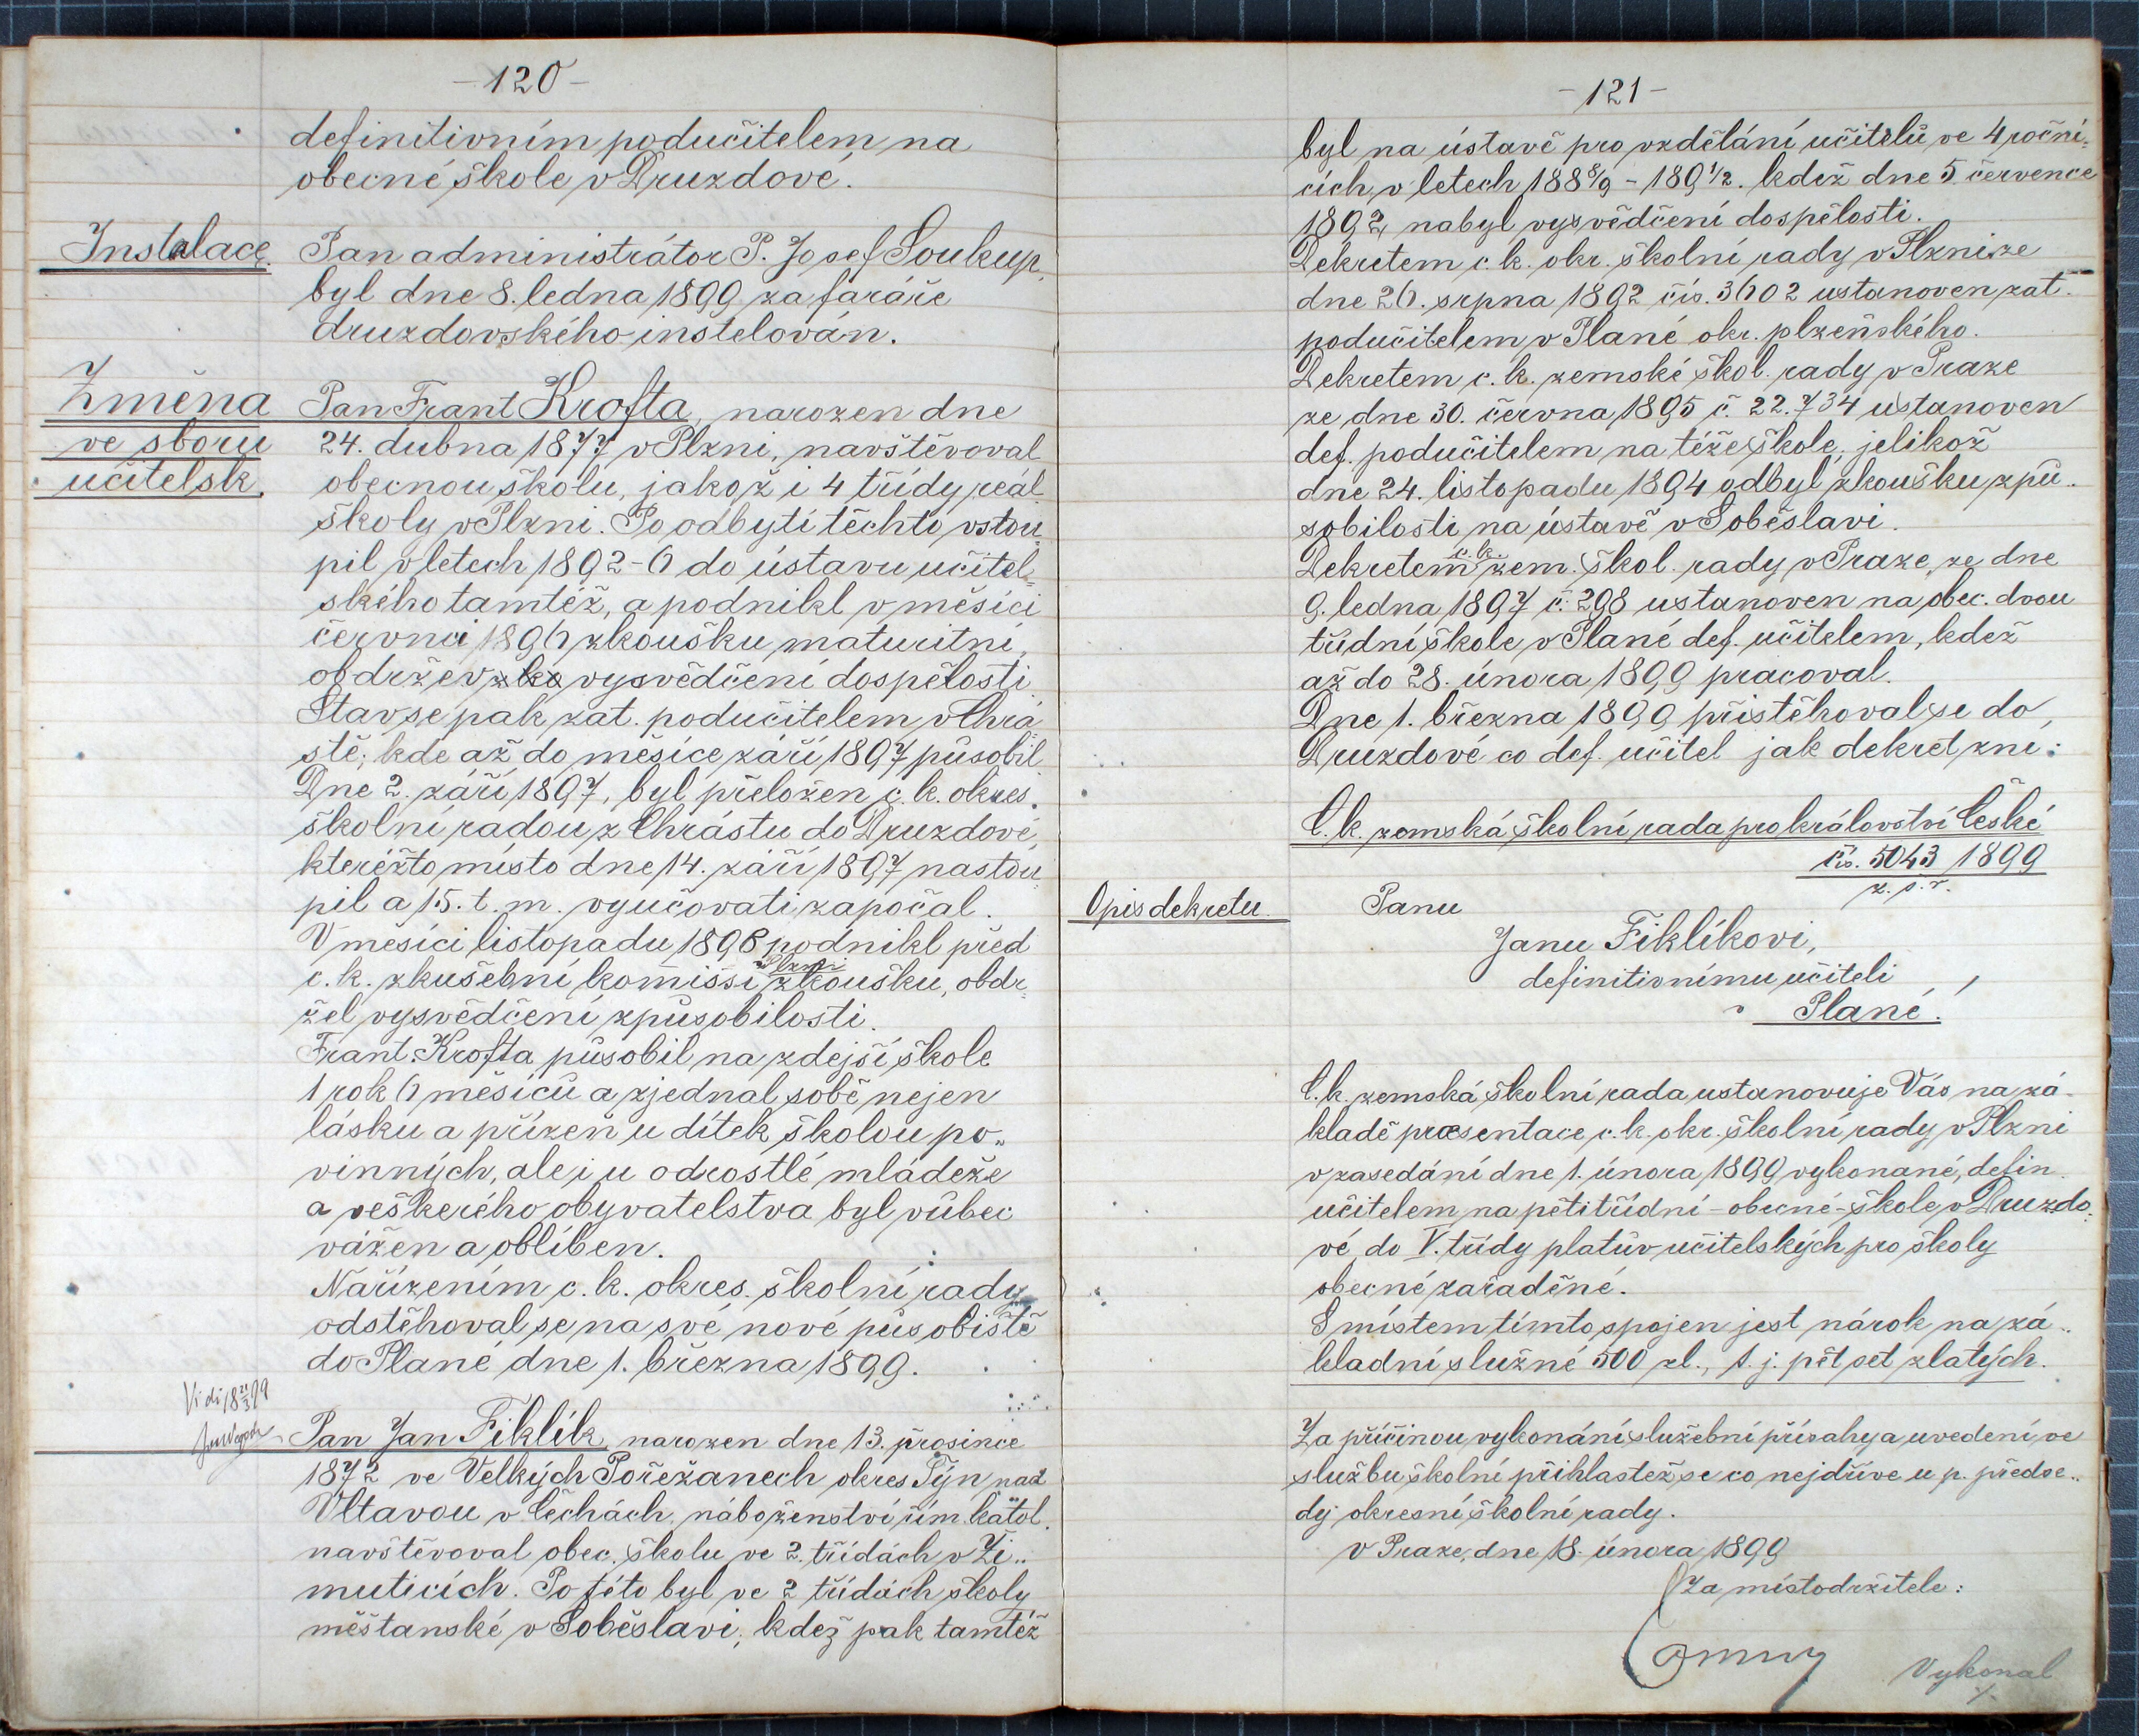 -120-
definitivním podučitelem na
obecné škole v Druzdové.
Instalace.
Pan administrátor P. Josef Soukup,
byl dne 8. ledna 1899 za faráře
druzdovského instelován.
Změna
ve sboru
učitelsk.
Pan Frant Krofta, narozen dne
24. dubna 1877 v Plzni, navštěvoval
obecnou školu, jakož i 4 třídy reál.
školy v Plzni. Po odbytí těchto vstou„
pil v letech 1892-6 do ústavu učitel„
ského tamtéž, a podnikl v měsíci
červnci 1896 zkoušku maturitní,
obdržev vysvědčení dospělosti
Stav se pak zat. podučitelem v Chrá
stě; kde až do měsíce září 1897 působil
Dne 2. září 1897, byl přeložen c. k. okres.
školní radou z Chrástu do Druzdové,
kteréžto místo dne 14. září 1897 nastou„
pil a 15. t. m. vyučovati započal.
V měsíci listopadu 1898 podnikl před
c. k. zkušební komissi v Plzni zkoušku, obdr„
žel vysvědčení způsobilosti.
Frant. Krofta působil na zdejší škole
1 rok 6 měsíců a zjednal sobě nejen
lásku a přízeň u dítek školou po„
vinných, ale i u odrostlé mládeže
a veškerého obyvatelstva byl vůbec
vážen a oblíben.
Nařízením c. k. okres. školní rady
odstěhoval se na své nové působiště
do Plané dne 1. března 1899.
Vidi 18 21/3 99
Pan Jan Fiklík, narozen dne 13. prosince
1872 ve Velkých Pořežanech okres Týn nad
Vltavou v Čechách, náboženství řím. katol.
navštěvoval obec. školu ve 2. třídách v Ži„
muticích. Po této byl ve 2 třídách školy
měštanské v Soběslavi; kdež pak tamtéž
-121-
byl na ústavě pro vzdělání učitelů ve 4 roční„
cích v letech 188 8/9 - 189 1/2. kdež dne 5 července
1892 nabyl vysvědčení dospělosti.
Dekretem c. k. okr. školní rady v Plzni ze
dne 26. srpna 1892 čís. 3602 ustanoven zat.
podučitelem v Plané okr. plzeňského.
Dekretem c. k. zemské škol. rady v Praze
ze dne 30. června 1895 č. 22.734 ustanoven
def. podučitelem na téže škole, jelikož
dne 24. listopadu 1894 odbyl zkoušku způ„
sobilosti na ústavě v Soběslavi.
Dekretem c. k. zem. škol. rady v Praze ze dne
9. ledna 1897 č. 298 ustanoven na obec. dvou
třídní škole v Plané def. učitelem, kdež
až do 28. února 1899 pracoval.
Dne 1. března 1899 přistěhoval se do
Druzdové co def. učitel jak dekret zní:
C. k. zemská školní rada pro království České
čís. 5043 1899
z. š. r.
Opis dekretu.
Panu
Janu Fiklíkovi,
definitivnímu učiteli
v Plané.
C. k. zemská školní rada ustanovuje Vás na zá„
kladě praesentace c. k. okr. školní rady v Plzni
v zasedání dne 1. února 1899 vykonané, defin.
učitelem na pětitřídní - obecné - škole v Druzdo„
vé, do V. třídy platův učitelských pro školy
obecné zařaděné.
S místem tímto spojen jest nárok na zá„
kladní služné 500 zl., t. j. pět set zlatých.
Za příčinou vykonání služební přísahy a uvedení ve
službu školní přihlastež se co nejdříve u p. předse„
dy okresní školní rady.
v Praze, dne 18. února 1899
Za místodržitele:
Vykonal